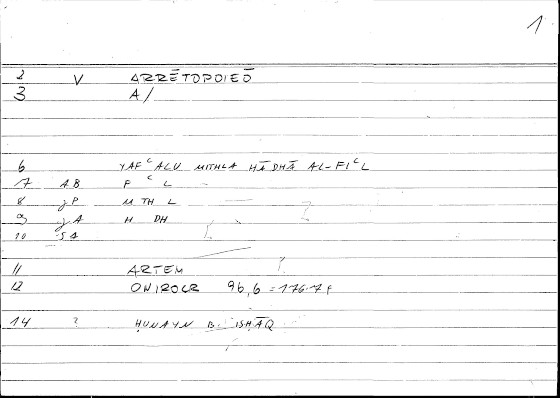 1
2 V ARRĒTOPOIEŌ
3 A/
6 YAFᶜALU MITHLA HĀDHĀ AL-FIᶜL
7 AB F ᶜ L
8 jP M TH L
9 jA H DH
10 SA
11 ARTEM
12 ONIROCR 96,6 = 176.7f
14 ? ḤUNAYN B. ISḤĀQ